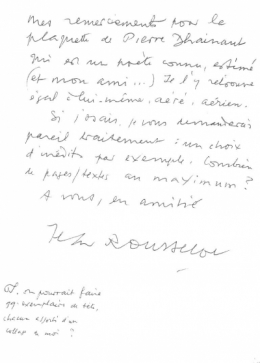 Mes remerciements pour la
plaquette de Pierre Dhainaut
qui est un poète connu, estimé
(et mon ami...) Je l'y retrouve
égal à lui-même, aéré, aérien.
Si j'osais, je vous demanderais
pareil traitement : un choix
d'inédits par exemple. Combien
de pages/textes au maximum ?
A vous, en amitié
Jean ROUSSELOT
on pourrait faire
99 exemplaires en tête,
chacun assorti d'un
collage de moi ?